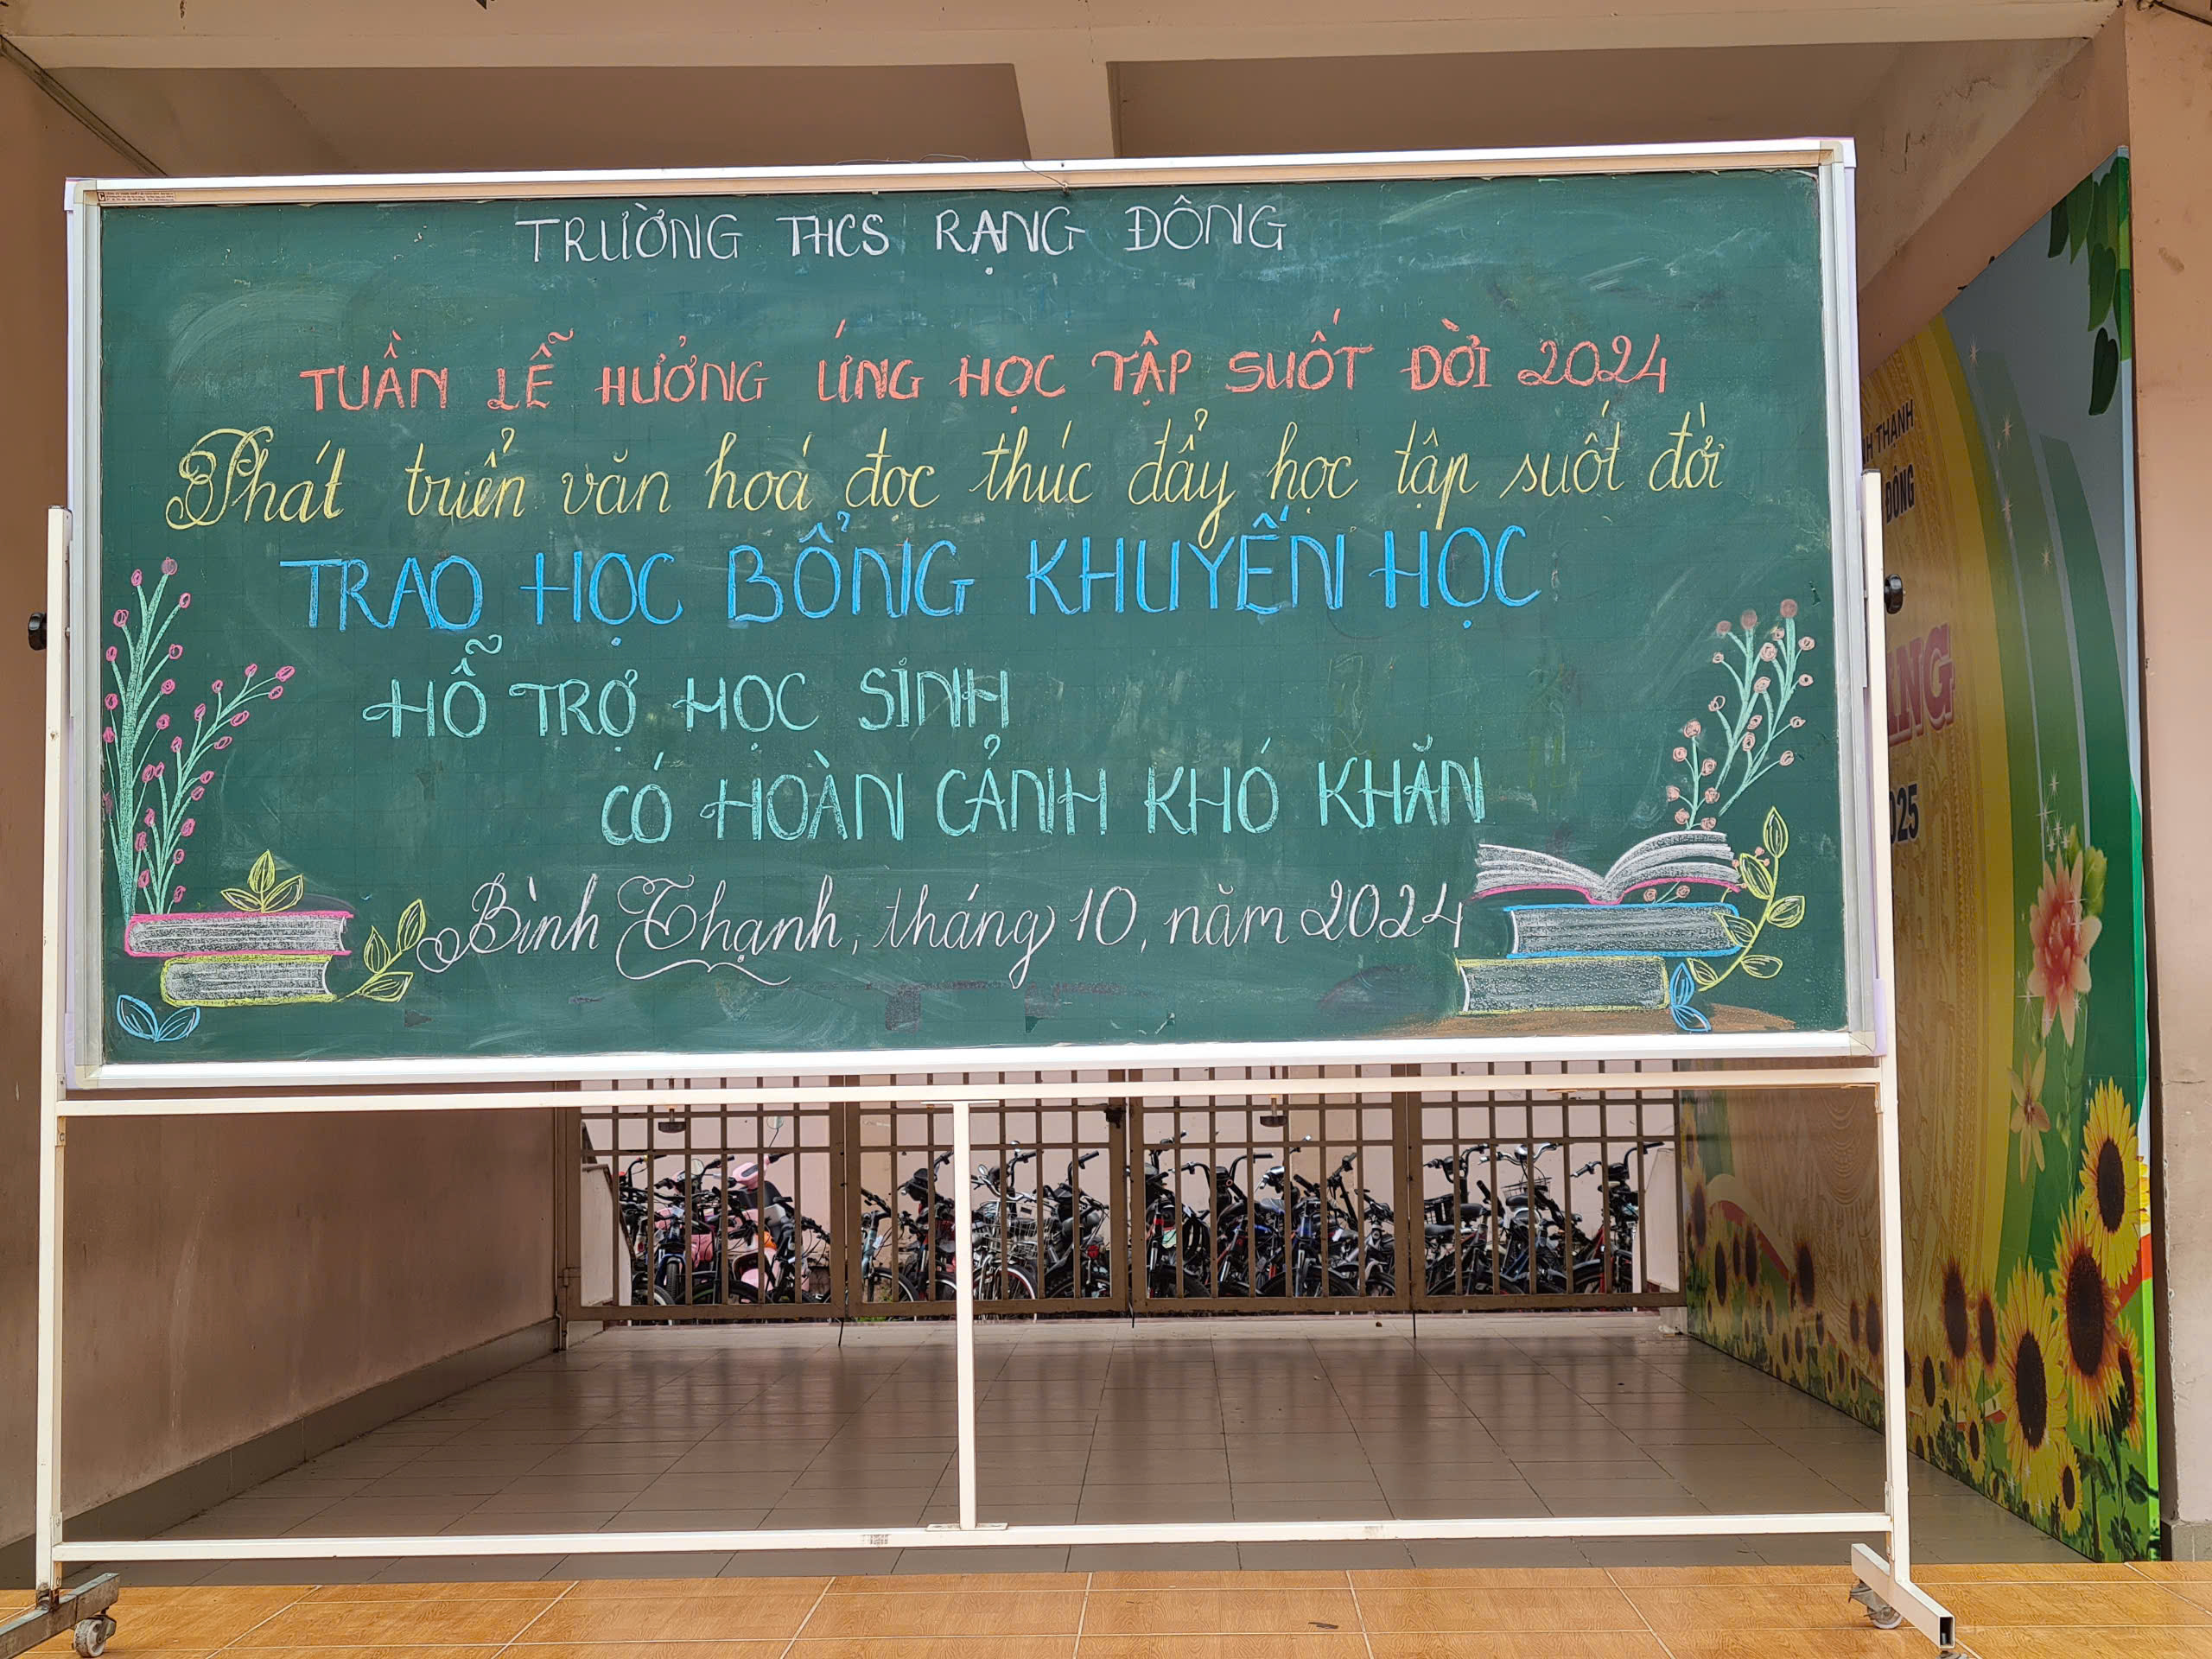 TRƯỜNG THCS RẠNG ĐÔNG
TUẦN LỄ HƯỞNG ỨNG HỌC TẬP SUỐT ĐỜI 2024
Phát triển văn hoá đọc thúc đẩy học tập suốt đời
TRAO HỌC BỔNG KHUYẾN HỌC
HỖ TRỢ HỌC SINH
CÓ HOÀN CẢNH KHÓ KHĂN
Bình Thạnh, tháng 10, năm 2024
NH THẠNH
ĐÔNG
ANG
025